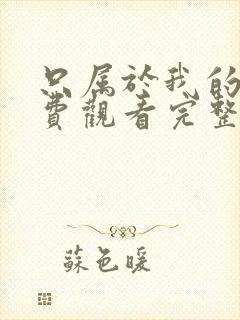 只属於我的
費觀看完整
蘇色暖